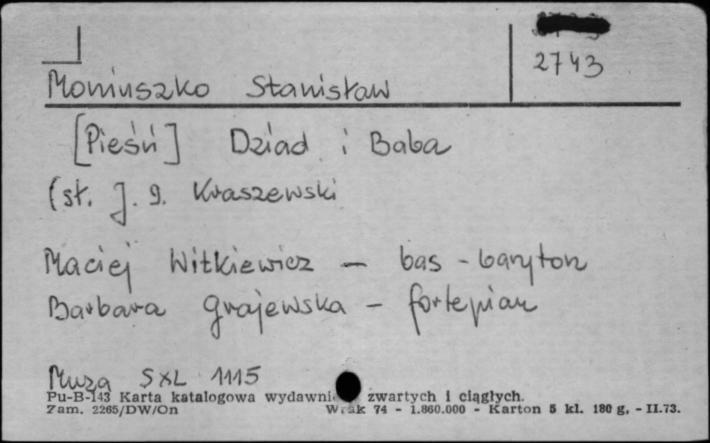 2743
Moniuszko Stanisław
[Pieśń] Dziad i Baba
(sł. J. I. Kraszewski
Maciej Witkiewicz - bas - baryton
Barbara Grajewska - fortepian
Muza SXL 1115
Pu-B-143 Karta katalogowa zwartych i ciągłych.
Zam. 2265/DW/On W-ak 74 - 1.860.000 - Karton 5 kl. 180 g. - II.73.